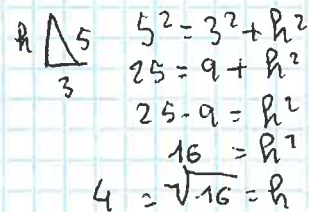 h 5
3
5² = 3² + h²
25 = 9 + h²
25 - 9 = h²
16 = h²
4 = √16 = h